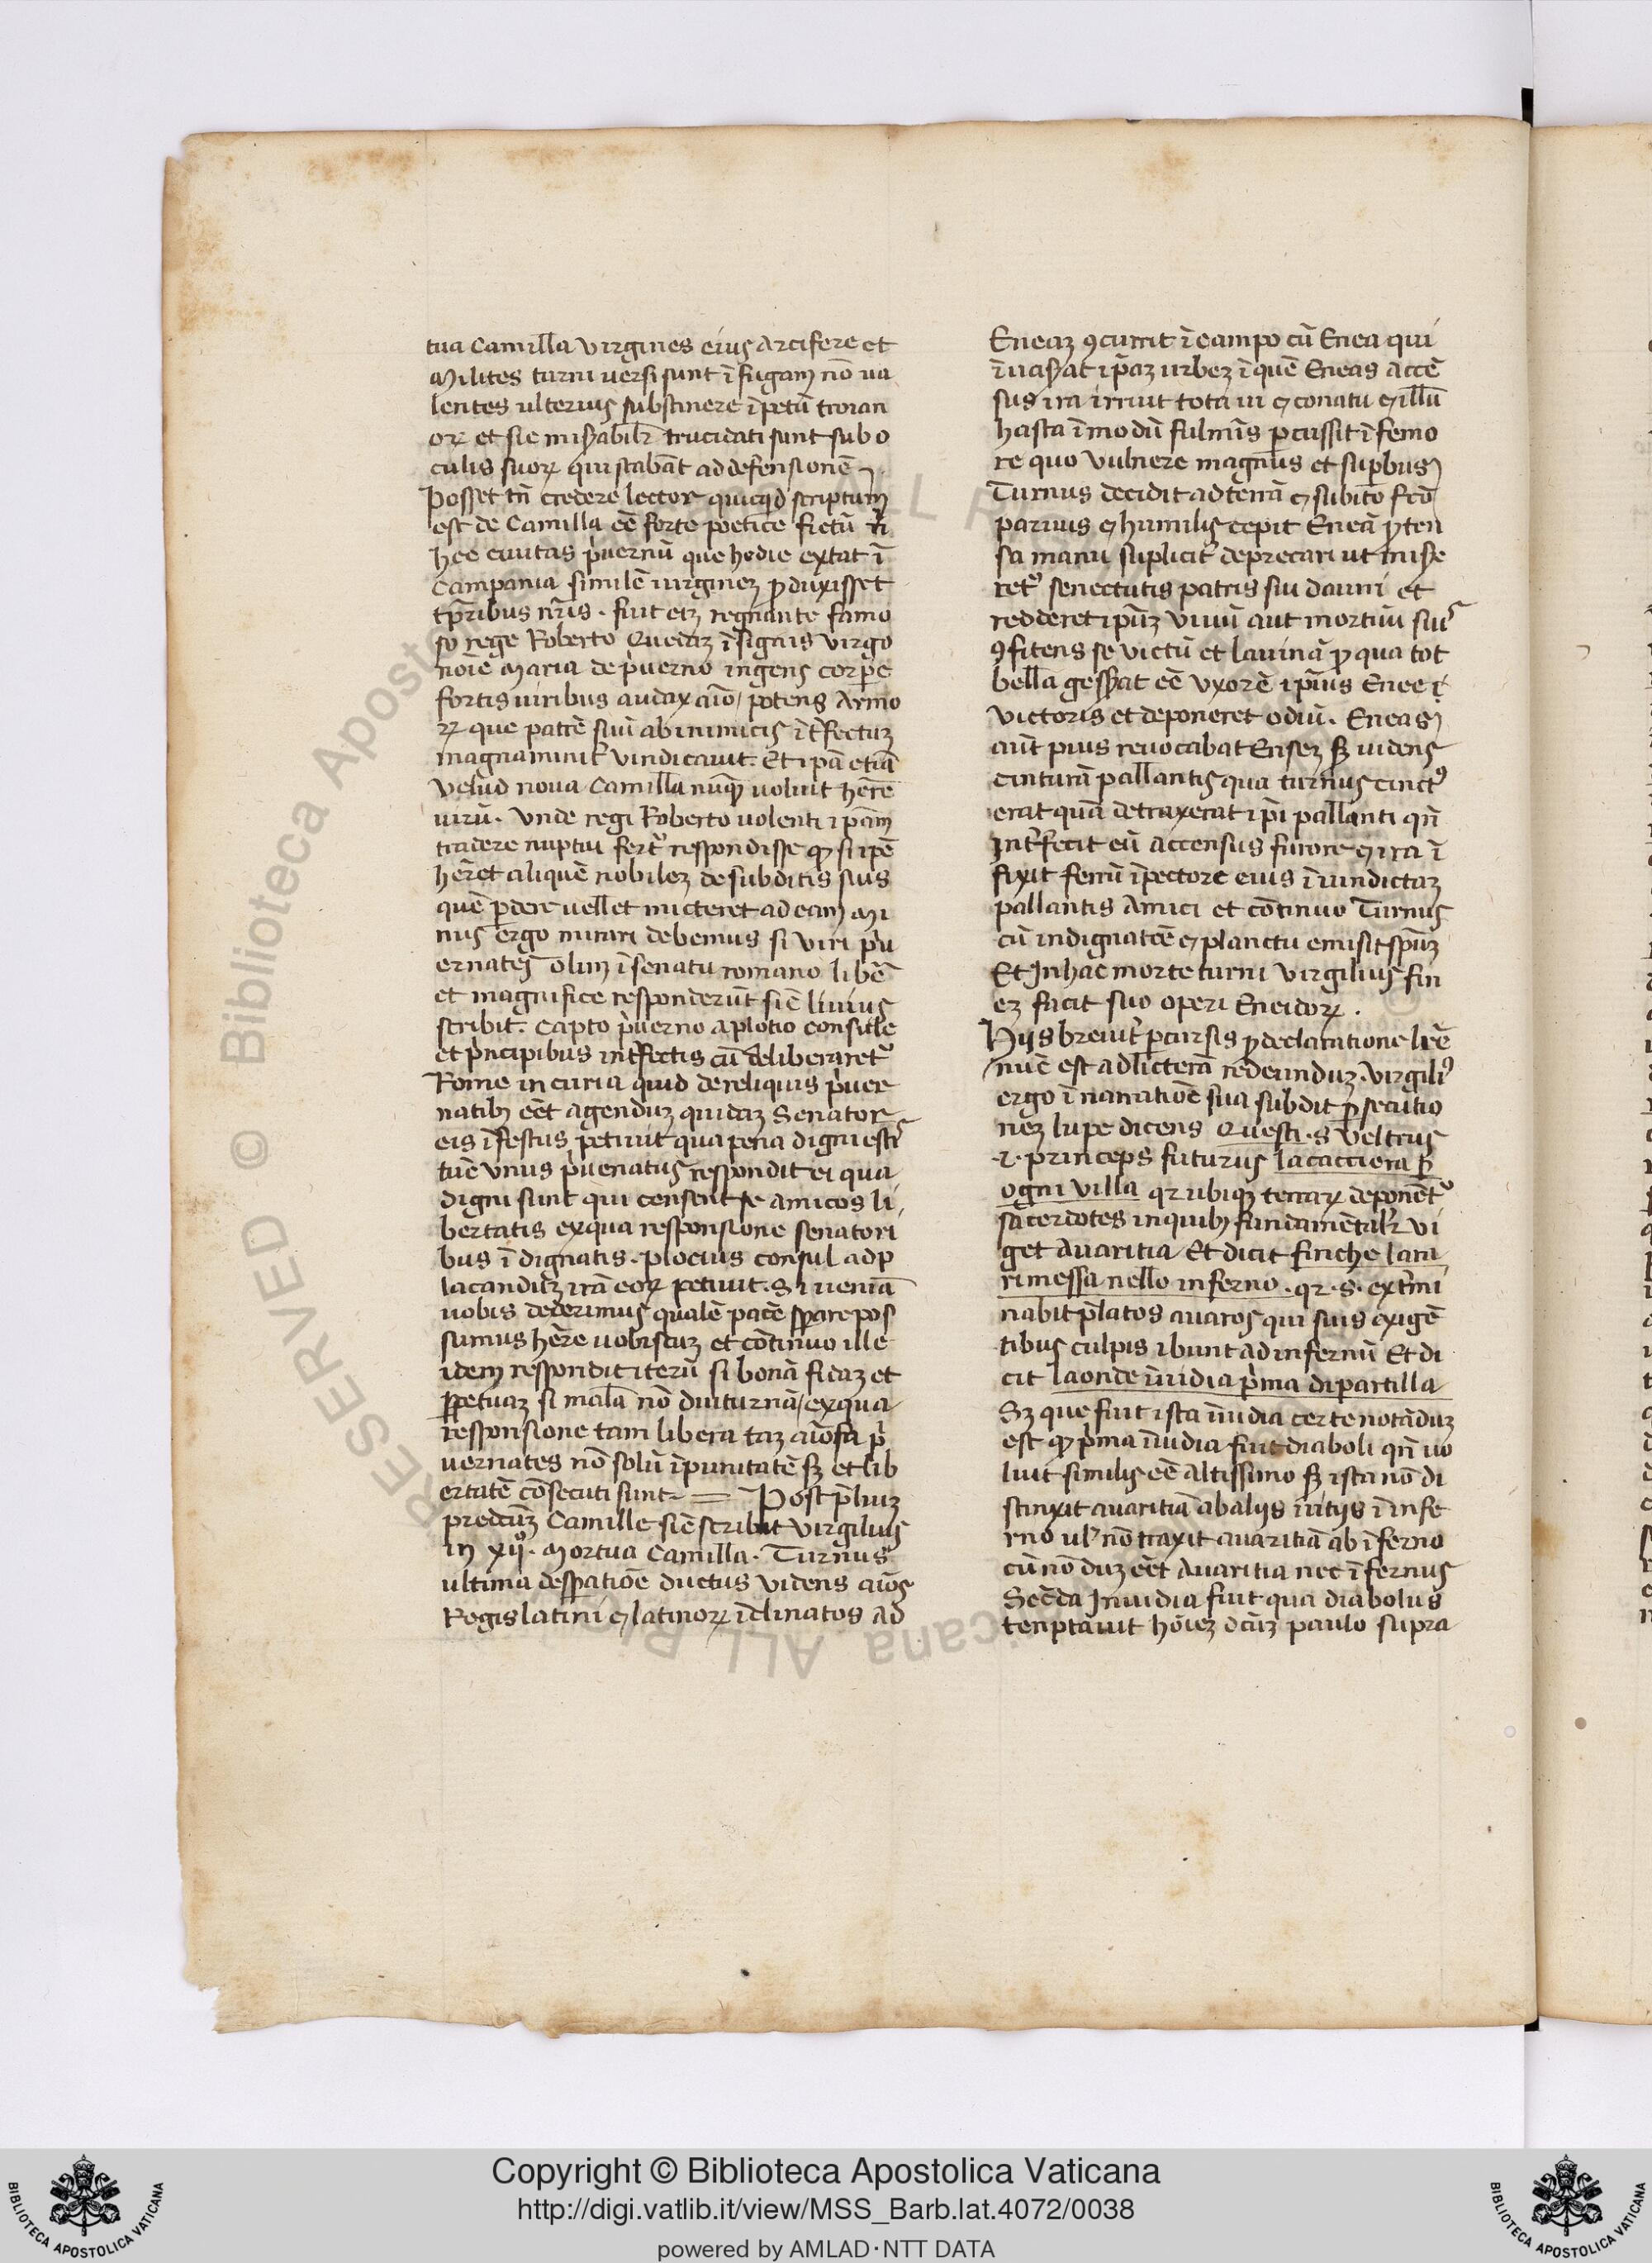 tua Camilla virgines eius arcifere et
Milites turni uersi sunt ī fugam nō ua
lentes ulterius substinere īpetū troian
oꝝ et sic mis̄abilr̄ trucidati sunt sub o
culis suoꝝ qui stabāt ad defensionē
Posset tn̄ credere lector quicqd̄ scriptum
est de Camilla eē forte poetice fictū ñ
hec ciuitas p̄uernū que hodie extat ī
Campania similē uirgineꝫ ꝓduxisset
tp̄ribus nr̄is. fuit etꝫ regnante famo
so rege Roberto Quedaꝫ īsignis virgo
noīe Maria de p̄uerno ingens corpe
fortis uiribus audax aīo, potens Armo
ꝝ que patrē suū ab inimicis īt̄fectuꝫ
magnanimit̄ vindicauit. Et ip̄a etiā
velud noua Camilla nūqꝫ uoluit hēre
uirū. Vnde regi Roberto uolenti ip̄am
tradere nuptui fert᷑ respondisse qꝫ si ip̄e
hēret aliquē nobileꝫ de subditis suis
quē ꝑdere uellet micteret ad eam Mi
nus ergo mirari debemus si viri p̄u
ernates olim ī senatu romano libē
et magnifice responderūt sic̄ liuius
scribit. Capto p̄uerno a plotio consule
et p̄ncipibus int̄fectis cū deliberaret᷑
Rome in curia quid de reliquis p̄uer
natibꝫ eēt agenduꝫ quidaꝫ Senator
eis īfestus petiuit qua pena digni estis
tūc vnus p̄uernatus respondit ei qua
digni sunt qui censent se amicos li,
bertatis ex qua responsione senatori
bus īdignatis. plocius consul ad p
lacanduꝫ irā eoꝝ petiuit. Si ueniā
uobis dederimus qualē pacē sp̄are pos
sumus hēre uobiscuꝫ et cōtinuo ille
idem respondit iterū si bonā fidaꝫ et
ꝑpetuaꝫ si malā nō diuturnā, ex qua
responsione tam libera taꝫ aīosa p̄
uernates nō solū īpunitatē sꝫ et lib
ertatē cōsecuti sunt == Post p̄liuꝫ
predcūꝫ Camille sic̄ scribit Virgilius
in xij°. Mortua Camilla. Turnus
ultima desp̄atiōe ductus videns aīos
Regis latini ⁊ latinoꝝ īclinatos ad
Eneaꝫ ꝯcurrit ī campo cū Enea qui
īuas̄at ip̄aꝫ urbeꝫ ī quē Eneas accē
sus ira irruit tota ui ⁊ conatu ⁊ illū
hasta ī modū fulmīs ꝑcussit ī femo
re quo vulnere magnus et supbus
Turnus decidit ad terrā ⁊ subito fcō
paruus ⁊ humilis cepit Eneā ꝓten
sa manu suplicit̄ deprecari ut mis̄e
ret᷑ senectutis patris sui dauni et
redderet ip̄uꝫ viuū aut mortuū suis
ꝯfitens se victū et lauinā ꝓ qua tot
bella gess̄at eē vxorē ip̄ius Enee
victoris et deponeret odiū. Eneas
aūt pius reuocabat Enseꝫ sꝫ uidens
cinturā pallantis qua turnus cinct᷒
erat quā detraxerat ip̄i pallanti qn̄
Int̄fecit eū accensus furore ⁊ ira ī
fixit ferrū ī pectore eius ī uindictaꝫ
pallantis amici et cōtinuo Turnus
cū indignatēe ⁊ planctu emisit sp̄uꝫ
Et In hac morte turni virgilius fin
eꝫ facit suo operi Eneidoꝝ.
Hijs breuit̄ ꝑcursis ꝓ declaratione lrē
nūc est ad licterā redeunduꝫ. Virgili᷒
ergo ī narratiōe sua subdit ꝑsecutio
neꝫ lupe dicens Questi .s. veltrus
.i. princeps futurus lacacciera ꝑ
ogni villa qꝛ ubiqꝫ terraꝝ deponēt᷑
sacerdotes in quibꝫ fundamētalr̄ vi
get Auaritia Et dicit finche lara
rimessa nello inferno. qꝛ .s. ext̄mi
nabit p̄latos auaros qui suis exigē
tibus culpis ibunt ad infernū Et di
cit laonde īuidia p̄ma dipartilla
Sꝫ que fuit ista īuidia certe notāduꝫ
est qꝫ p̄ma īuidia fuit diaboli qn̄ uo
luit similis eē Altissimo sꝫ ista nō di
stinxit auaritiā ab alijs uitijs ī infe
rno ul̄ nō traxit auaritiā ab īferno
cū nō duꝫ eēt Auaritia nec īfernus
Secd̄a Inuidia fuit qua diabolus
temptauit hoīeꝫ dcūꝫ paulo supra
Copyright © Biblioteca Apostolica Vaticana
http://digi.vatlib.it/view/MSS_Barb.lat.4072/0038
powered by AMLAD·NTT DATA